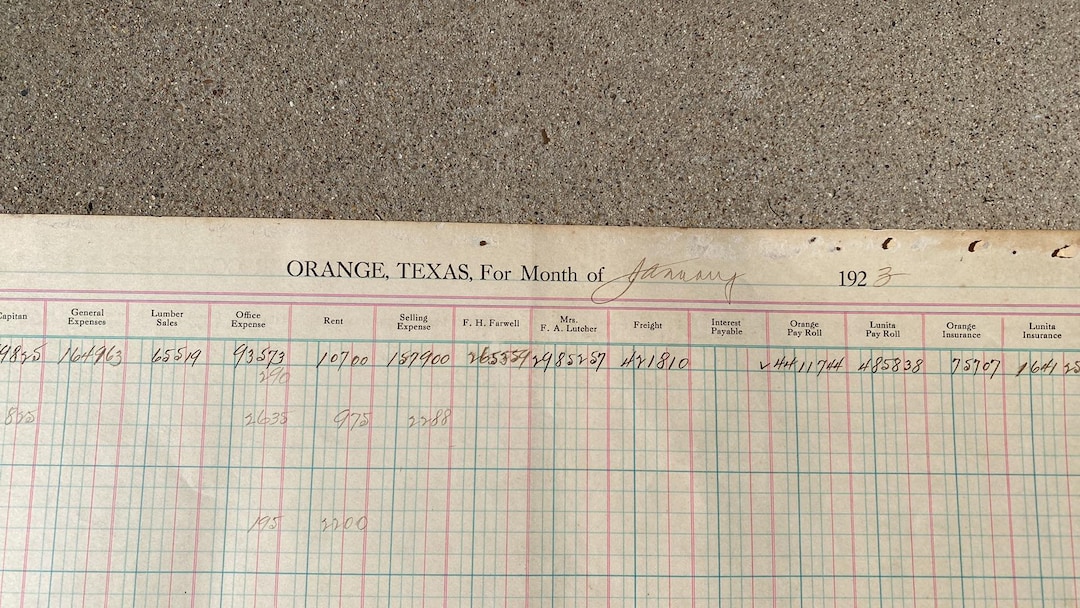 ORANGE, TEXAS, For Month of January 1923
Capitan General Expenses Lumber Sales Office Expense Rent Selling Expense F. H. Farwell Mrs. F. A. Lutcher Freight Interest Payable Orange Pay Roll Lunita Pay Roll Orange Insurance Lunita Insurance
9825 164963 65519 93573 10700 157900 2985257 421810 √4411744 485838 75707 164125
290
825 2635 975 2288
195 2200